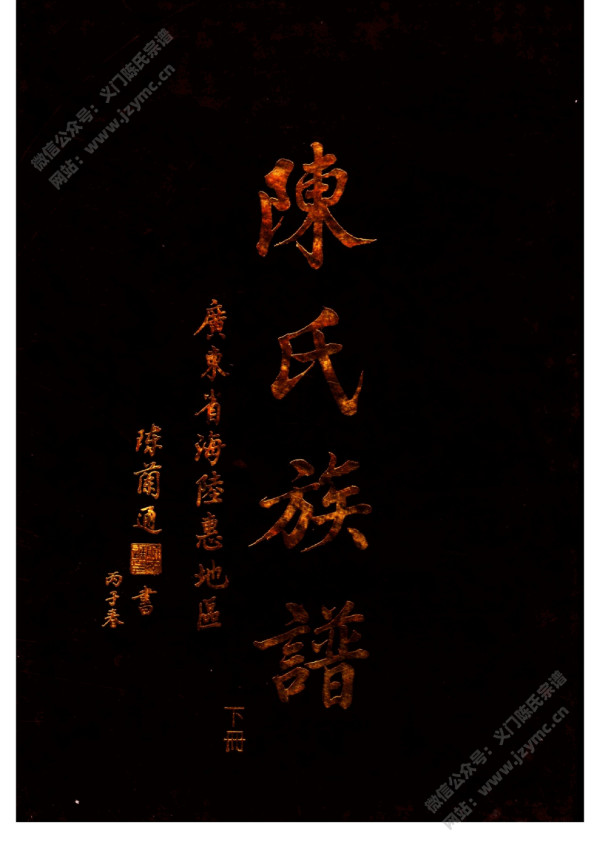 陳氏族譜
廣東省海陸惠地區
下冊
書
丙子春
微信公众号：义门陈氏宗谱
网站：www.jzymc.cn
微信公众号：义门陈氏宗谱
网站：www.jzymc.cn